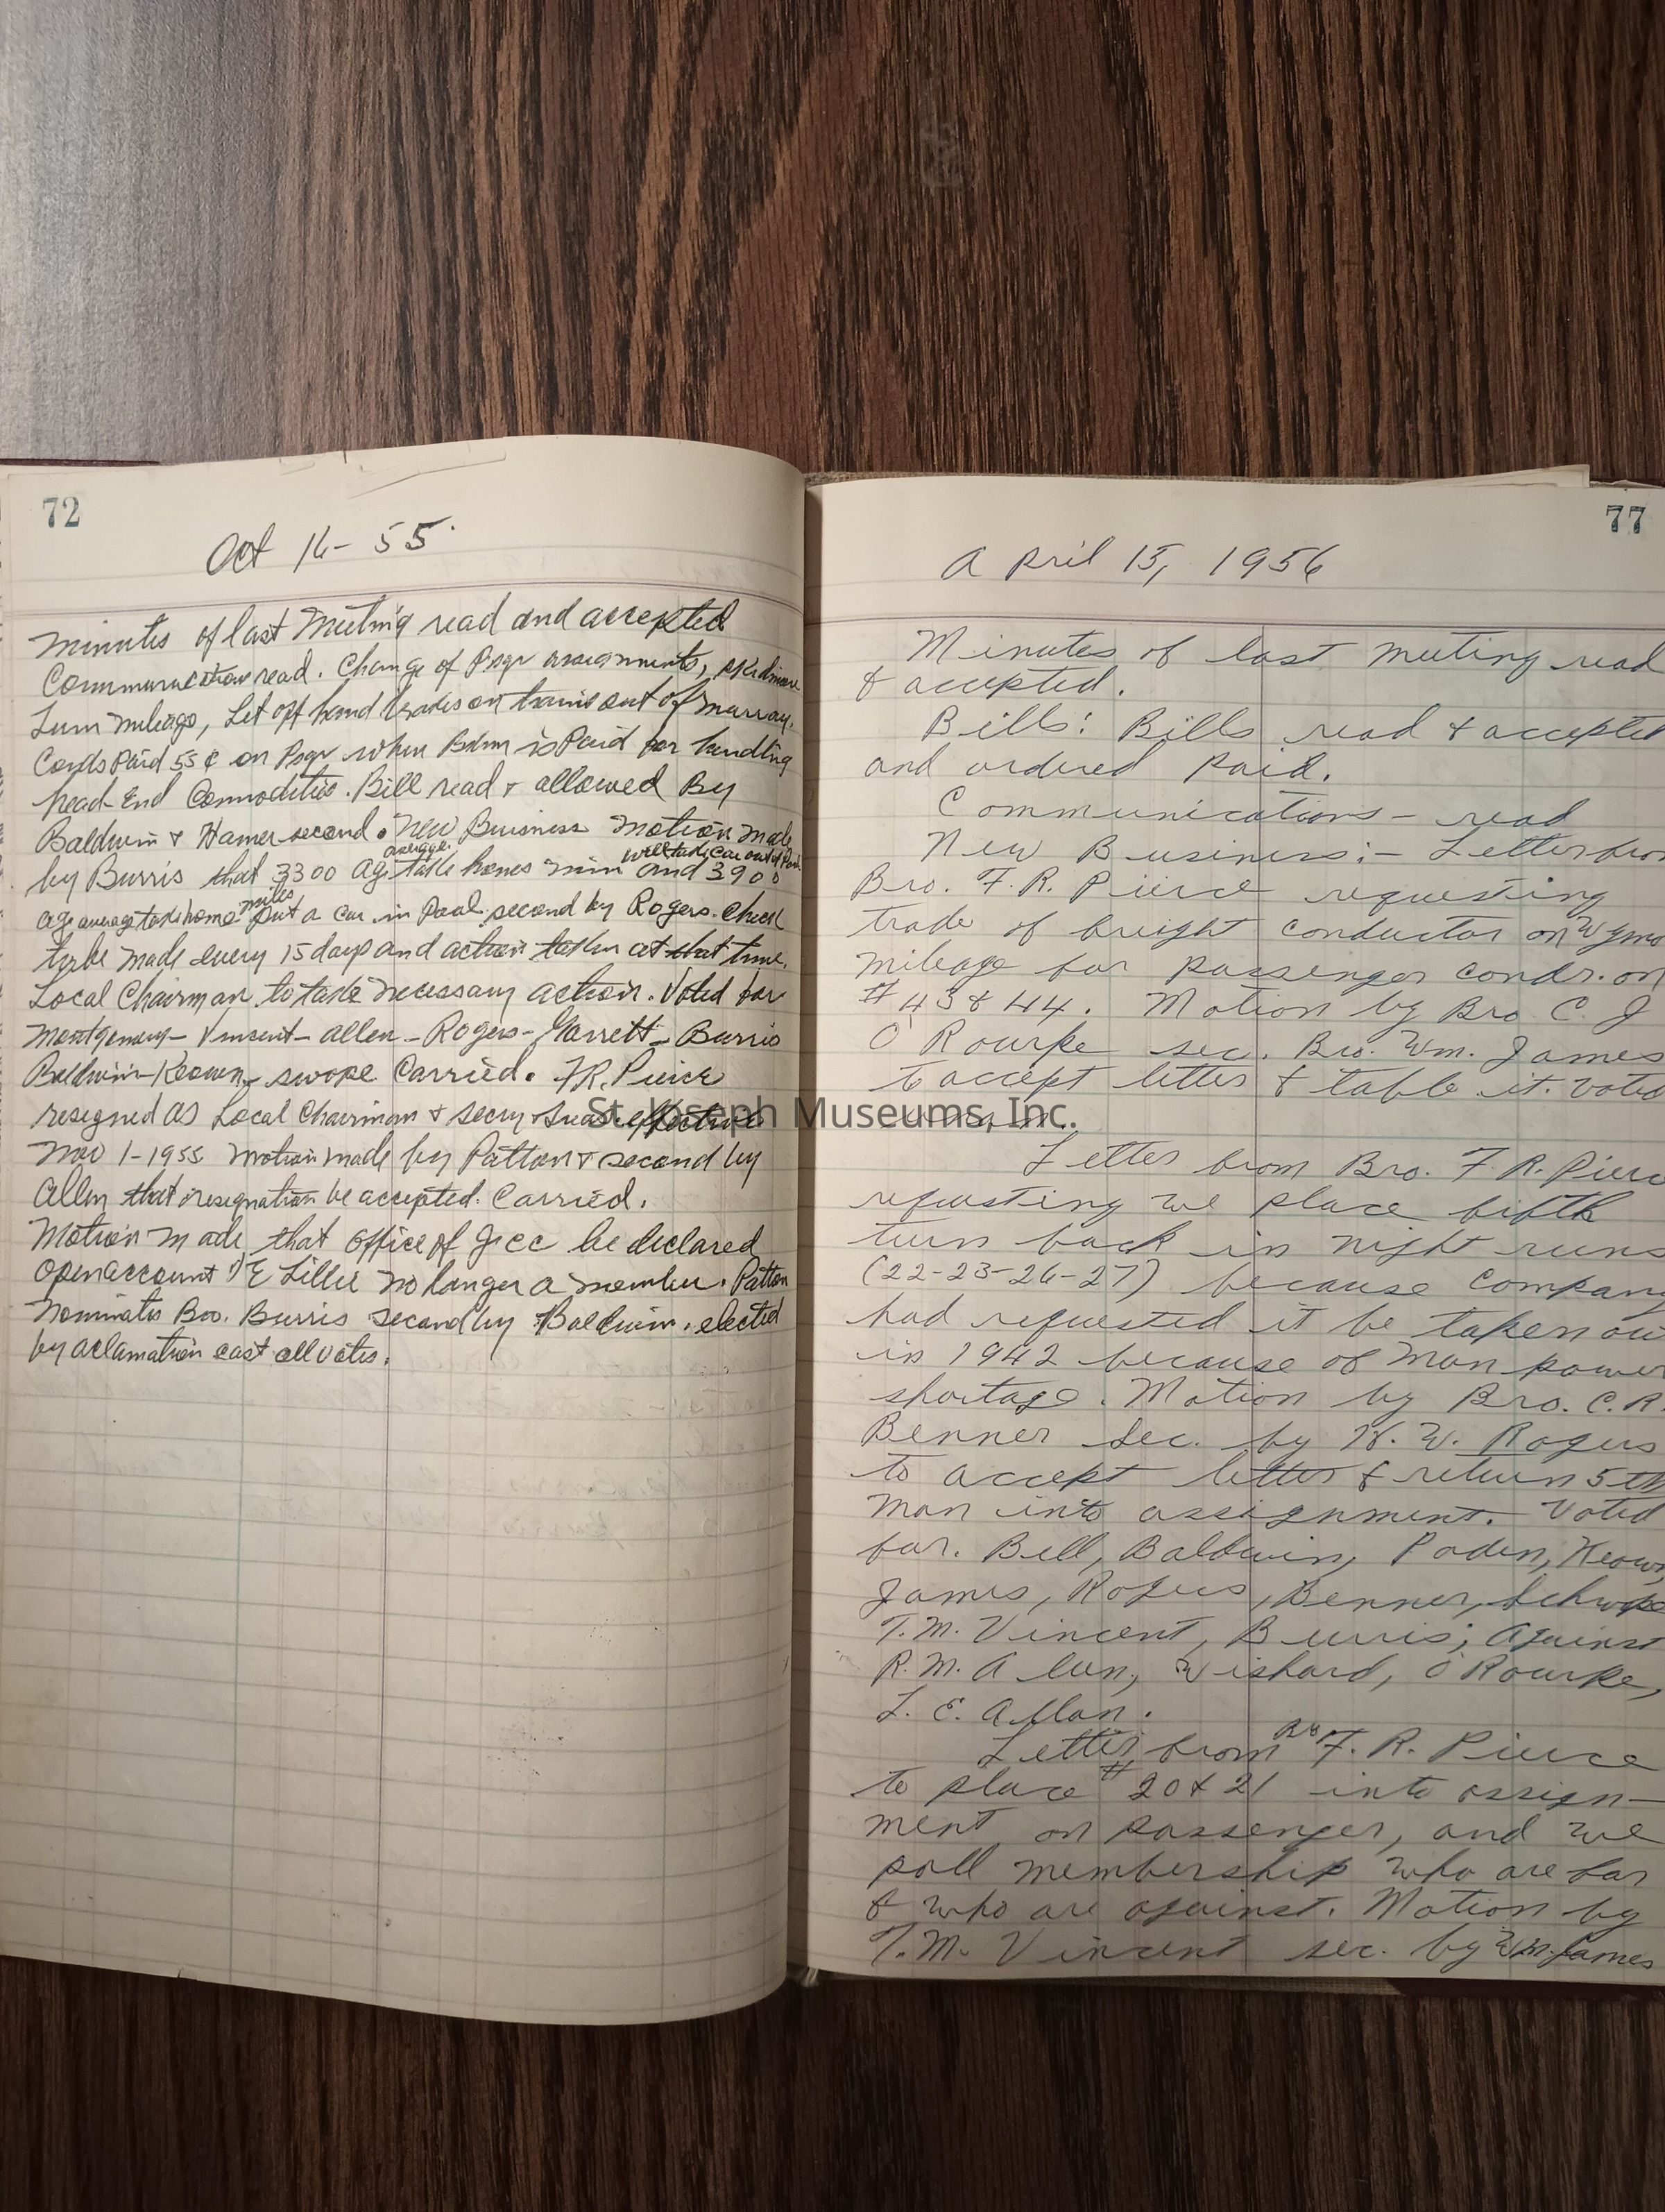 72
Oct 16- 55.
Minutes of last Meeting read and accepted
Communication read. Change of Psgr assignments, Skidmore
Turn mileage, Set off hand brakes on trains out of Murray.
Conds Paid 55¢ on Psgr when Bkm is Paid for handling
head-End Commodities. Bill read + allowed By
Baldwin + Hamer second. New Business Motion made
average. will take car out of Pool
by Burris that 3300 age take homes min and 3900
miles
age average take home put a car in Pool second by Rogers. Check
to be made every 15 days and action taken at that time.
Local Chairman to take necessary action. Voted for
Montgomery- Vinsent- Allen- Rogers- Garrett- Burris
Baldwin- Keown- Swope Carried. F.R. Pierce
resigned as Local Chairman + secry + treas effective
Nov 1-1955 Motion made by Patton + second by
Allen that resignation be accepted. Carried.
Motion made that office of be declared
open account E Lillie no longer a member. Patton
Nominates Bro. Burris second by Baldwin. elected
by aclamation cast all votes.
77
April 15, 1956
Minutes of last meeting read
& accepted.
Bills: Bills read & accepted
and ordered paid.
Communications - read
New Business:- Letter from
Bro. F. R. Pierce requesting
trade of freight conductor on Wymo
mileage for passenger condr. on
#43 & 44. Motion by Bro C. J
O'Rourke sec. Bro. Wm. James
to accept letter & table it. Voted
Letter from Bro. F. R. Pierce
requesting we place fifth
turn back in night runs
(22-23-26-27) because company
had requested it be taken out
in 1942 because of man power
shortage. Motion by Bro. C. R.
Benner sec. by W. W. Rogers
to accept letter & return 5th
man into assignment. Voted
for. Bell, Baldwin, Paden, Keown,
James, Rogers, Benner, Schwope
T. M. Vincent, Burris; Against
R. M. Allen, Wishard, O'Rourke,
L. E. Allan.
Bro
Letter from F. R. Pierce
to place #20 & 21 into assign-
ment on passenger, and we
poll membership who are for
& who are against. Motion by
T. M. Vincent sec. by Wm. James
St. Joseph Museums, Inc.